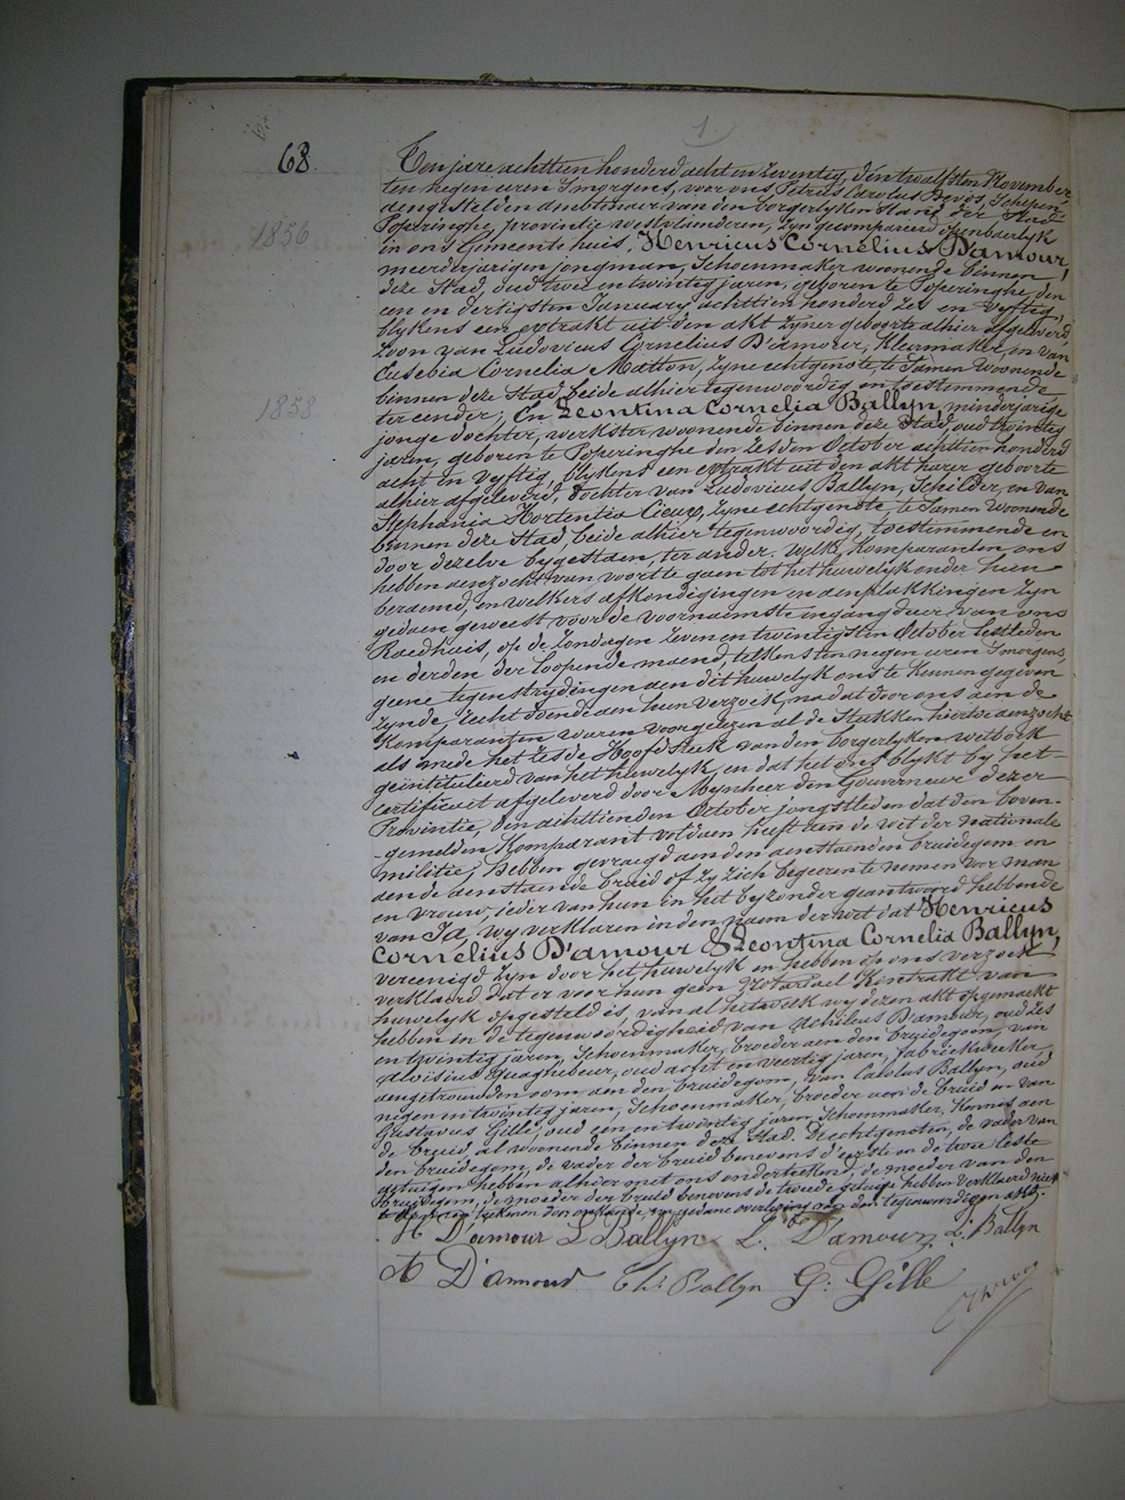 1.
68.
Ten jare achttien honderd acht en zeventig, den twalfsten November,
ten negen uren 's morgens, voor ons Petrus Carolus Devos, Schepen,
aengestelden ambtenaer van den borgerlyken stand der Stad
Poperinghe, provintie westvlaenderen, zyn gecompareerd openbaerlyk
1856
in ons Gemeente huis, Henricus Cornelius D'amour,
meerderjarigen jongman, Schoenmaker woonende binnen
deze Stad, oud twee en twintig jaren, geboren te Poperinghe, den
een en dertigsten January achttien honderd zes en vyftig,
blykens een extrakt uit den akt zyner geboorte alhier afgeleverd,
zoon van Ludovicus Cornelius D'amour, Kleermaker, en van
Eusebia Cornelia Matton, zyne echtgenote, te Samen woonende
binnen deze Stad, beide alhier tegenwoordig en toestemmende
1858
ter eender; En Leontina Cornelia Ballyn, minderjarige
jonge dochter, werkster woonende binnen deze Stad, oud twintig
jaren, geboren te Poperinghe den zesden October achttien honderd
acht en vyftig, blykens een extrakt uit den akt harer geboorte
alhier afgeleverd, dochter van Ludovicus Ballyn, Schilder, en van
Stephania Hortentia Cieux, zyne echtgenote, te Samen woonende
binnen deze Stad, beide alhier tegenwoordig, toestemmende en
door dezelve bygestaen, ter ander. Welke Komparanten ons
hebben aenzocht van voort te gaen tot het huwelyk onder hun
beraemd, en welkers afkondigingen en aenplakkingen zyn
gedaen geweest voor de voornaemste ingangdeur van ons
Raedhuis, op de zondagen zeven en twintigsten October lestleden
en derden der loopende maend, telkens ten negen uren 's morgens,
geene tegenstrydingen aen dit huwelyk ons te Kennen gegeven
zynde, recht doende aen hun verzoek, na dat door ons aen de
Komparanten waren voorgelezen al de Stukken hiertoe aenzocht
als mede het zesde Hoofdstuk van den borgerlyken wetboek
geïntituleerd van het huwelyk, en dat het ons blykt by het
certificaet afgeleverd door Mynheer den Gouverneur dezer
Provintie, den achttienden October jongstleden dat den boven-
-gemelden Komparant voldaen heeft aen de wet der nationale
militie, hebben gevraegd aen den aenstaenden bruidegom en
aen de aenstaende bruid of zy zich begeeren te nemen voor man
en vrouw, ieder van hun in het byzonder geantwoord hebbende
van Ja, wy verklaren in den naem der wet dat Henricus
Cornelius D'amour & Leontina Cornelia Ballyn,
vereenigd zyn door het huwelyk en hebben op ons verzoek
verklaerd dat er voor hun geen Notariael Kontrakt van
huwelyk opgesteld is, van al hetwelk wy dezen akt opgemaekt
hebben in de tegenwoordigheid van Achileus D'amour, oud zes
en twintig jaren, Schoenmaker, broeder aen den bruidegom, van
Aloïsius Quaghebeur, oud acht en veertig jaren, fabriekwerker,
aengetrouwden oom aen den bruidegom, van Carolus Ballyn, oud
negen en twintig jaren, Schoenmaker, broeder aen de bruid en van
Gustavus Gille, oud een en twintig jaren Schoenmaker, Kennis aen
de bruid, al woonende binnen deze Stad. De echtgenoten, de vader van
den bruidegom, de vader der bruid benevens d'eerste en de twee leste
getuigen hebben alhier met ons onderteekend, de moeder van den
bruidegom, de moeder der bruid benevens de tweede getuige hebben verklaerd niet
te konnen teekenen door onkunde, na gedane overlezing van den tegenwoordigen akt.
H D'amour L Ballyn L. D'amour L. Ballyn
A D'amour Ch. Ballyn G. Gille